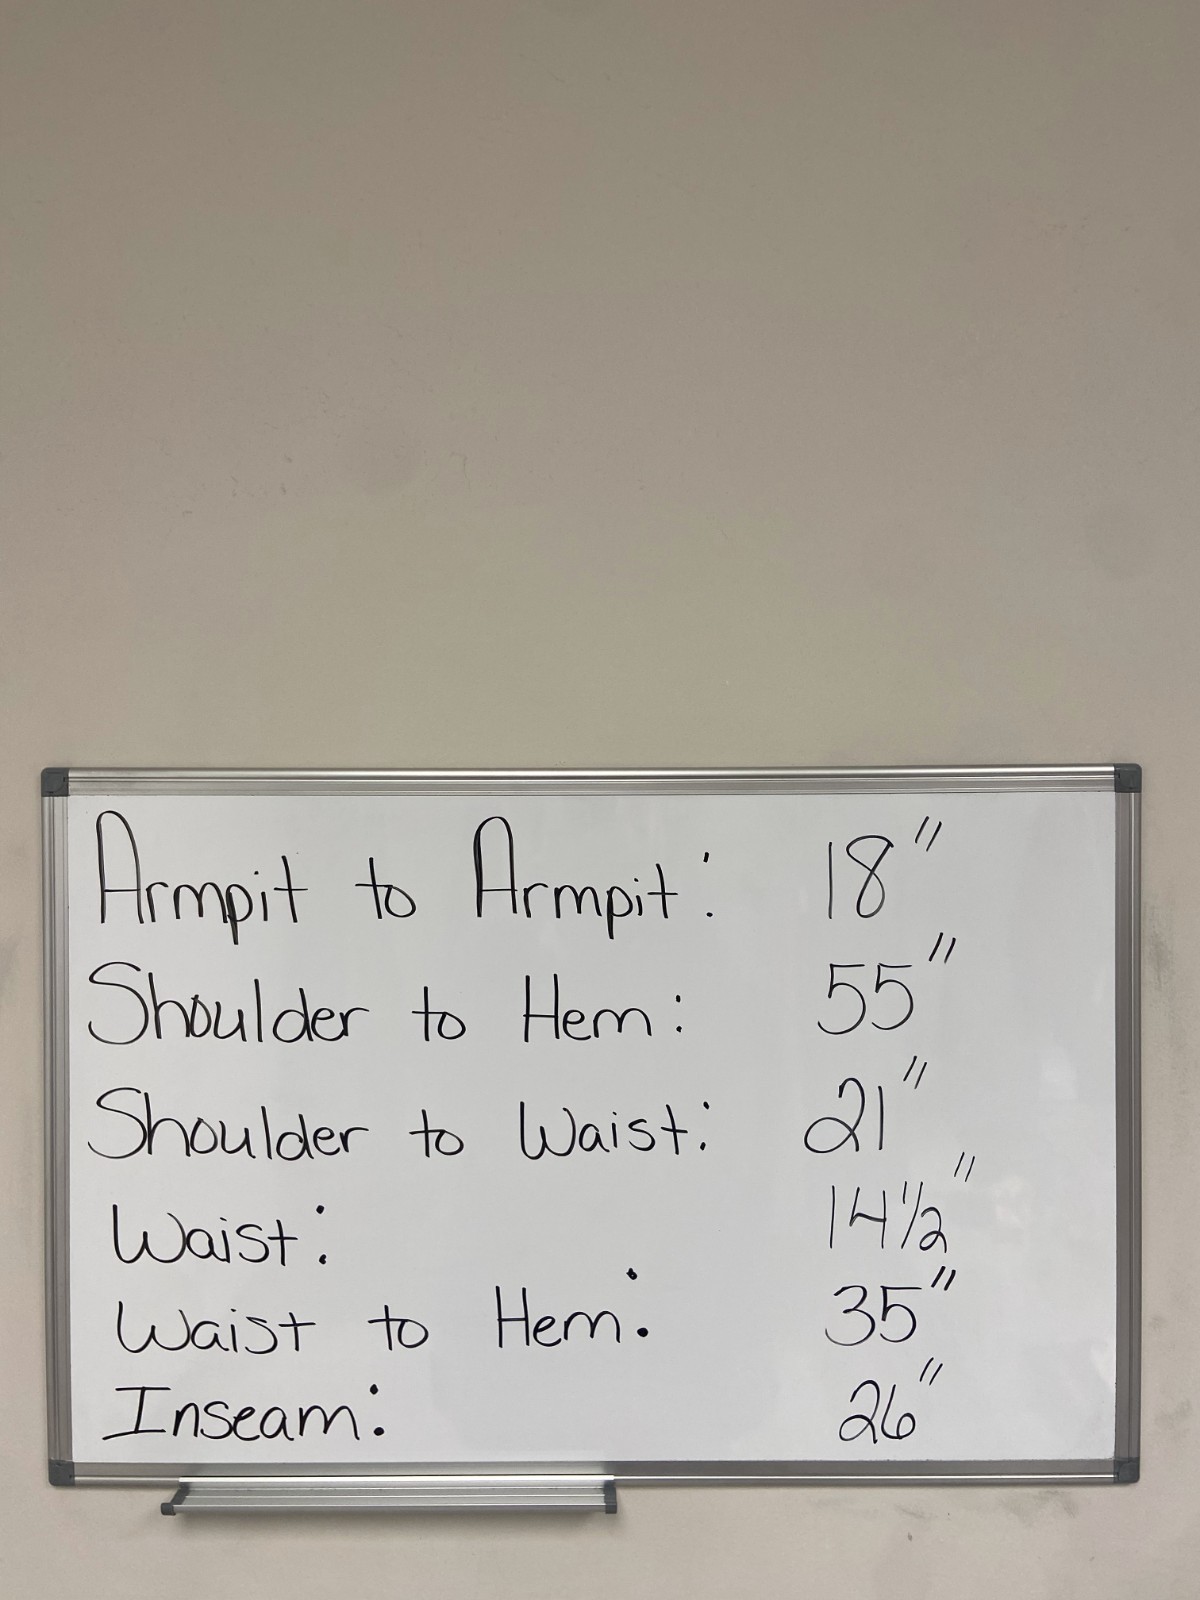 Armpit to Armpit: 18"
Shoulder to Hem: 55"
Shoulder to Waist: 21"
Waist: 14½"
Waist to Hem: 35"
Inseam: 26"